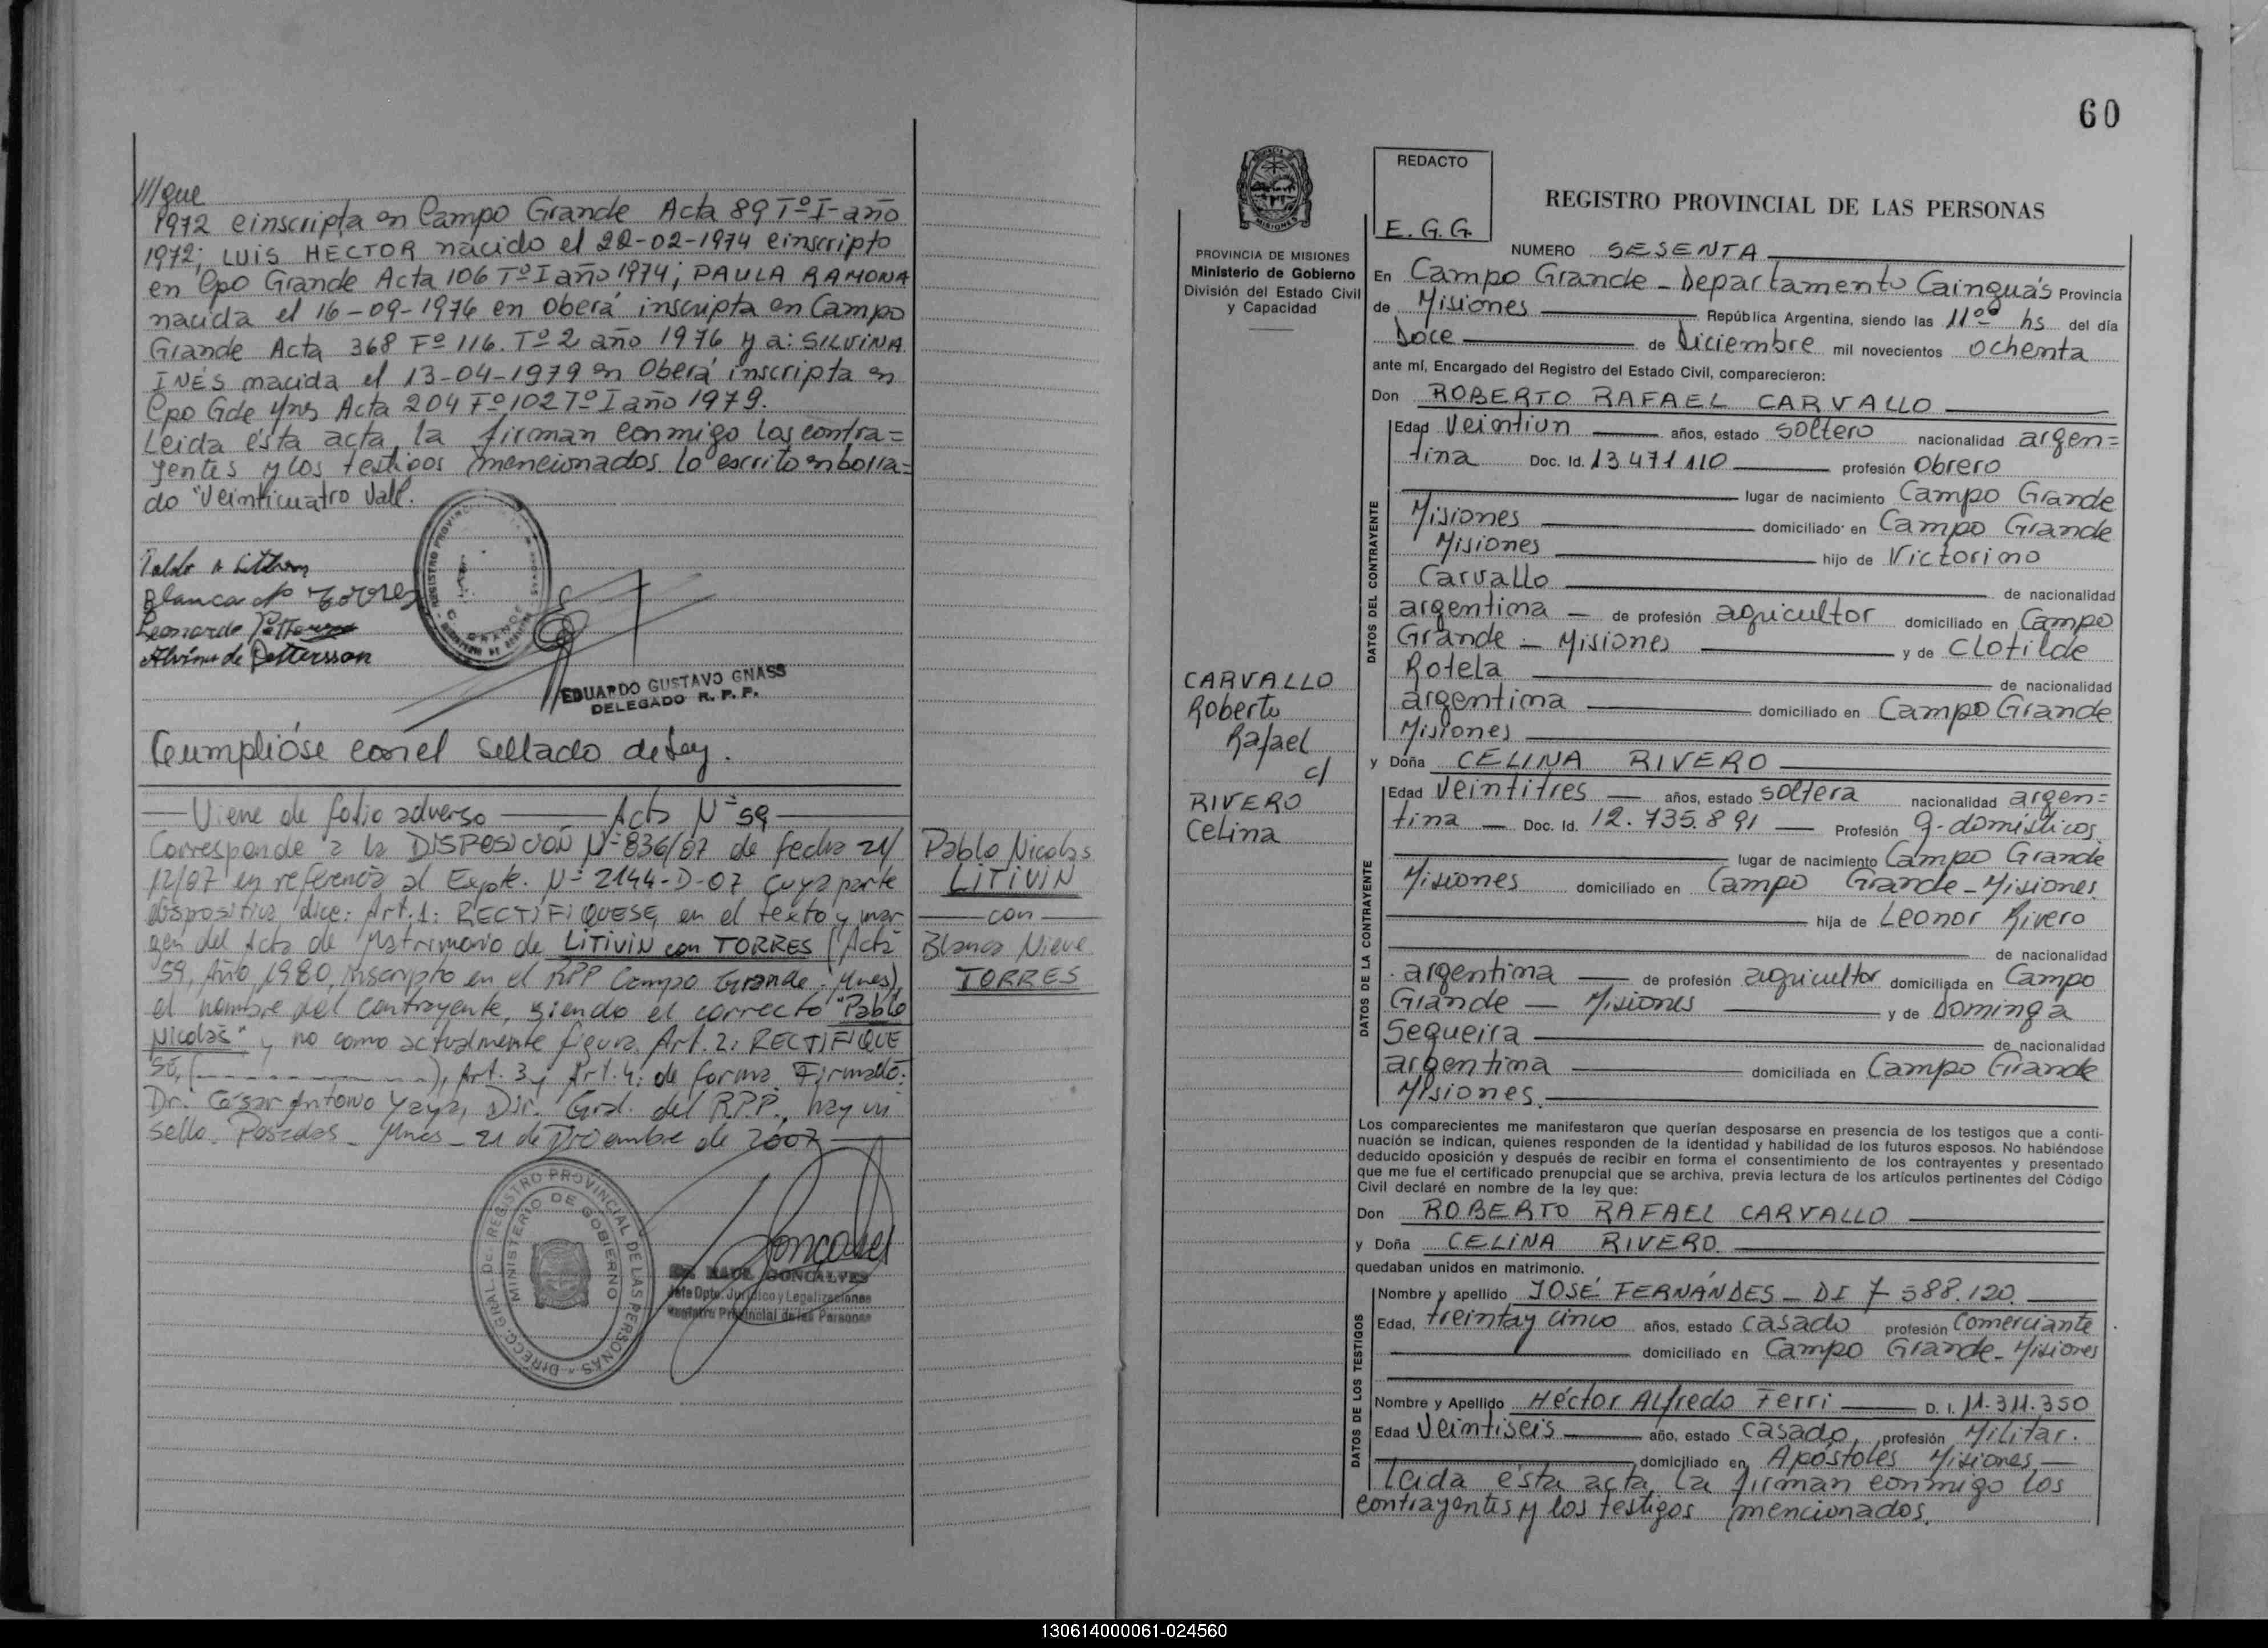 ///que
1972 e inscripta en Campo Grande Acta 89 Tº I- año
1972; LUIS HECTOR nacido el 22-02-1974 e inscripto
en Cpo Grande Acta 106 Tº I año 1974; PAULA RAMONA
nacida el 16-09-1976 en Oberá inscripta en Campo
Grande Acta 368 Fº 116. Tº 2 año 1976 y a: SILVINA
INÉS nacida el 13-04-1979 en Oberá inscripta en
Cpo Gde Mnes Acta 204 Fº 102 Tº I año 1979.
Leida ésta acta, la firman conmigo los contra=
yentes y los testigos mencionados. Lo escrito en borra=
do "Veinticuatro Vale.
Blanca N. Torres
Leonardo
Alvina de Pettersson
EDUARDO GUSTAVO GNASS
DELEGADO R. P. P.
Cumplióse con el sellado de Ley.
Viene de folio adverso Acta Nº 59
Corresponde a la DISPOSICION Nº 836/07 de fecha 21/
12/07 en referencia al Expte. Nº 2144-D-07 cuya parte
dispositiva dice: Art. 1: RECTIFIQUESE, en el texto y mar
gen del Acta de Matrimonio de LITIVIN con TORRES (Acta
59, Año 1980, inscripto en el RPP Campo Grande, Mnes),
el nombre del contrayente, siendo el correcto "Pablo
Nicolás" y no como actualmente figura. Art. 2: RECTIFIQUE
SE, (- - - - - - - - - -), Art. 3 y Art. 4: de forma. Firmado:
Dr. César Antonio Yaya, Dir. Gral. del R.P.P., hay un
sello. Posadas - Mnes - 21 de Diciembre de 2007
Pablo Nicolás
LITIVIN
con
Blanca Nieve
TORRES
DIRECC. GRAL. DEL REGISTRO PROVINCIAL DE LAS PERSONAS
MINISTERIO DE GOBIERNO
Dr. RAUL GONCALVES
Jefe Dpto. Jurídico y Legalizaciones
Registro Provincial de las Personas
60
PROVINCIA DE MISIONES
Ministerio de Gobierno
División del Estado Civil
y Capacidad
REDACTO
E. G. G.
REGISTRO PROVINCIAL DE LAS PERSONAS
NUMERO SESENTA
En Campo Grande - Departamento Cainguás Provincia
de Misiones República Argentina, siendo las 11⁰⁰ hs del día
Doce de Diciembre mil novecientos ochenta
ante mí, Encargado del Registro del Estado Civil, comparecieron:
Don ROBERTO RAFAEL CARVALLO
DATOS DEL CONTRAYENTE
Edad Veintiun años, estado soltero nacionalidad argen=
tina Doc. Id. 13.471.110 profesión Obrero
lugar de nacimiento Campo Grande
Misiones domiciliado en Campo Grande
Misiones hijo de Victorino
Carvallo de nacionalidad
argentina de profesión agricultor domiciliado en Campo
Grande - Misiones y de Clotilde
Rotela de nacionalidad
argentina domiciliado en Campo Grande
Misiones
CARVALLO
Roberto
Rafael
c/
RIVERO
Celina
y Doña CELINA RIVERO
DATOS DE LA CONTRAYENTE
Edad Veintitres años, estado soltera nacionalidad argen=
tina Doc. Id. 12.735.891 Profesión q-domésticos
lugar de nacimiento Campo Grande
Misiones domiciliado en Campo Grande-Misiones.
hija de Leonor Rivero
de nacionalidad
argentina de profesión agricultor domiciliada en Campo
Grande - Misiones y de Dominga
Sequeira de nacionalidad
argentina domiciliada en Campo Grande
Misiones.
Los comparecientes me manifestaron que querían desposarse en presencia de los testigos que a conti-
nuación se indican, quienes responden de la identidad y habilidad de los futuros esposos. No habiéndose
deducido oposición y después de recibir en forma el consentimiento de los contrayentes y presentado
que me fue el certificado prenupcial que se archiva, previa lectura de los artículos pertinentes del Código
Civil declaré en nombre de la ley que:
Don ROBERTO RAFAEL CARVALLO
y Doña CELINA RIVERO.
quedaban unidos en matrimonio.
DATOS DE LOS TESTIGOS
Nombre y apellido JOSÉ FERNÁNDES - DI 7.588.120
Edad, treinta y cinco años, estado casado profesión Comerciante
domiciliado en Campo Grande-Misiones
Nombre y Apellido Héctor Alfredo Ferri D. I. 11.311.350
Edad Veintiseis año, estado casado, profesión Militar.
domiciliado en Apóstoles Misiones
Leida ésta acta, la firman conmigo los
contrayentes y los testigos mencionados.
130614000061-024560